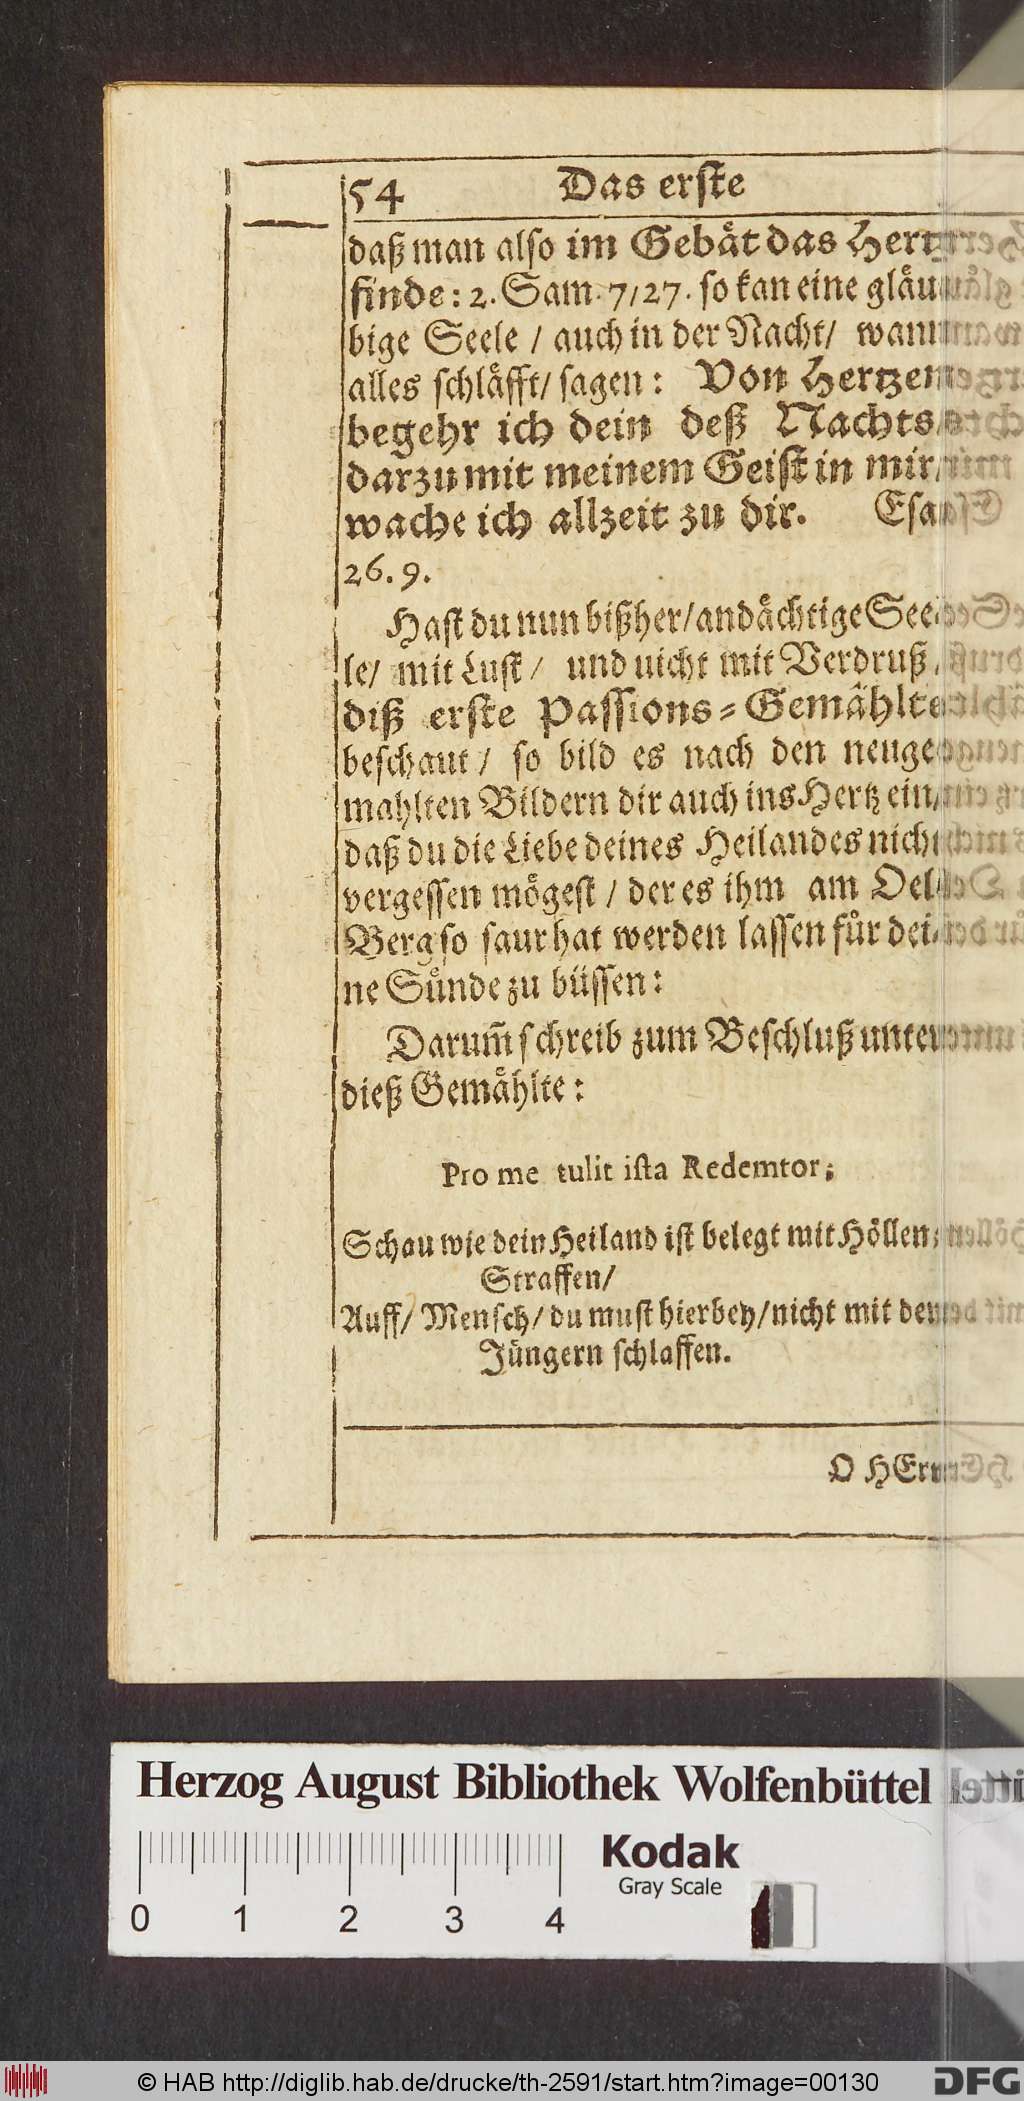 54 Das erste
daß man also im Gebät das Hertz
finde: 2. Sam. 7/27. so kan eine gläu-
bige Seele / auch in der Nacht/ wann
alles schläfft/ sagen: Von Hertzen
begehr ich dein deß Nachts/
darzu mit meinem Geist in mir/
wache ich allzeit zu dir. Esa.
26. 9.
Hast du nun bißher/andächtige See-
le/ mit Lust / und nicht mit Verdruß /
diß erste Passions-Gemählte
beschaut / so bild es nach den neuge-
mahlten Bildern dir auch ins Hertz ein/
daß du die Liebe deines Heilandes nicht
vergessen mögest / der es ihm am Oel-
Berg so saur hat werden lassen für dei-
ne Sünde zu büssen:
Darum̃ schreib zum Beschluß unter
dieß Gemählte:
Pro me tulit ista Redemtor;
Schau wie dein Heiland ist belegt mit Höllen-
Straffen/
Auff/ Mensch/ du must hierbey/nicht mit den
Jüngern schlaffen.
O HErr
Herzog August Bibliothek Wolfenbüttel
Kodak
Gray Scale
0 1 2 3 4
© HAB http://diglib.hab.de/drucke/th-2591/start.htm?image=00130
DFG